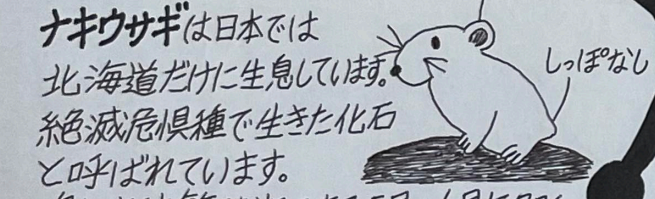 ナキウサギは日本では
北海道だけに生息しています。
絶滅危惧種で生きた化石
と呼ばれています。
しっぽなし